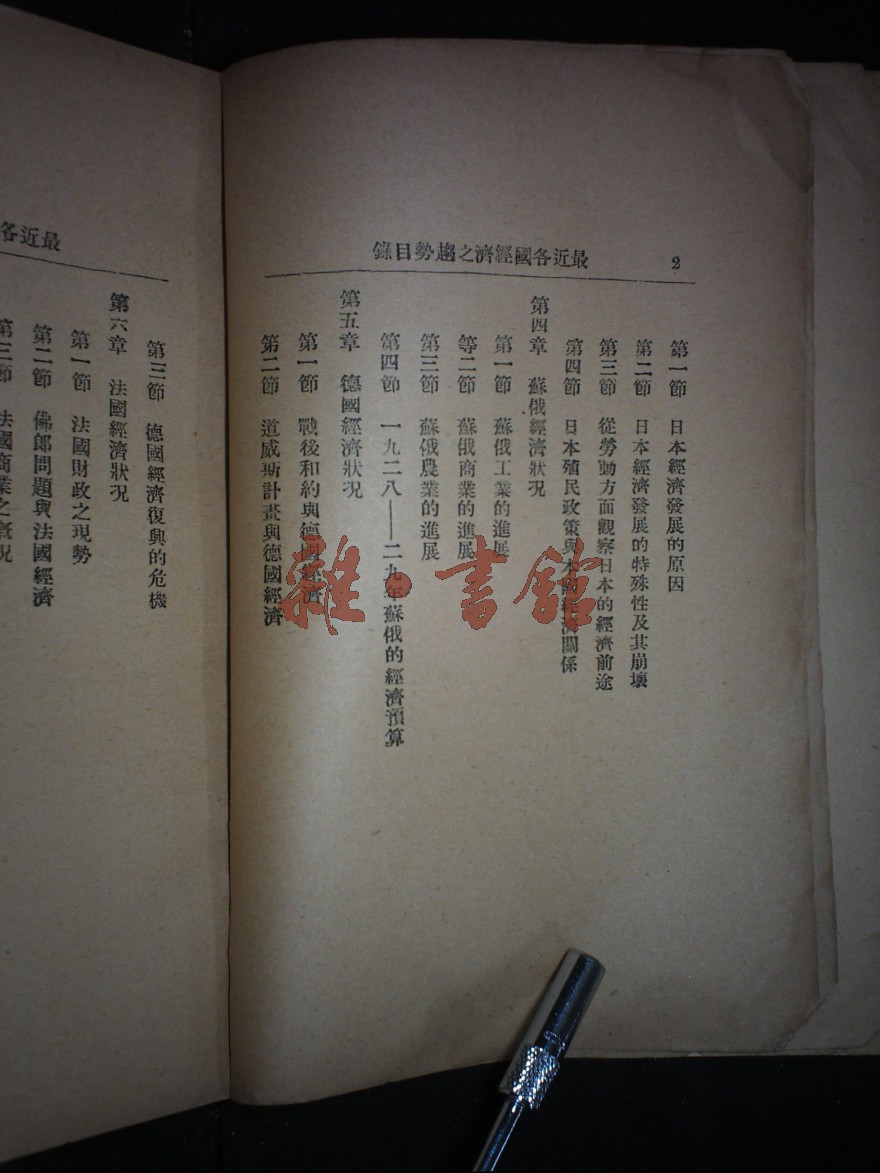 最近各國經濟之趨勢目錄
2
第一節 日本經濟發展的原因
第二節 日本經濟發展的特殊性及其崩壞
第三節 從勞動方面觀察日本的經濟前途
第四節 日本殖民政策與本國經濟關係
第四章 蘇俄經濟狀況
第一節 蘇俄工業的進展
等二節 蘇俄商業的進展
第三節 蘇俄農業的進展
第四節 一九二八——二九年蘇俄的經濟預算
第五章 德國經濟狀況
第一節 戰後和約與德國經濟
第二節 道威斯計畫與德國經濟
最近各
第三節 德國經濟復興的危機
第六章 法國經濟狀況
第一節 法國財政之現勢
第二節 佛郎問題與法國經濟
第三節 法國商業之概況
雜·書館